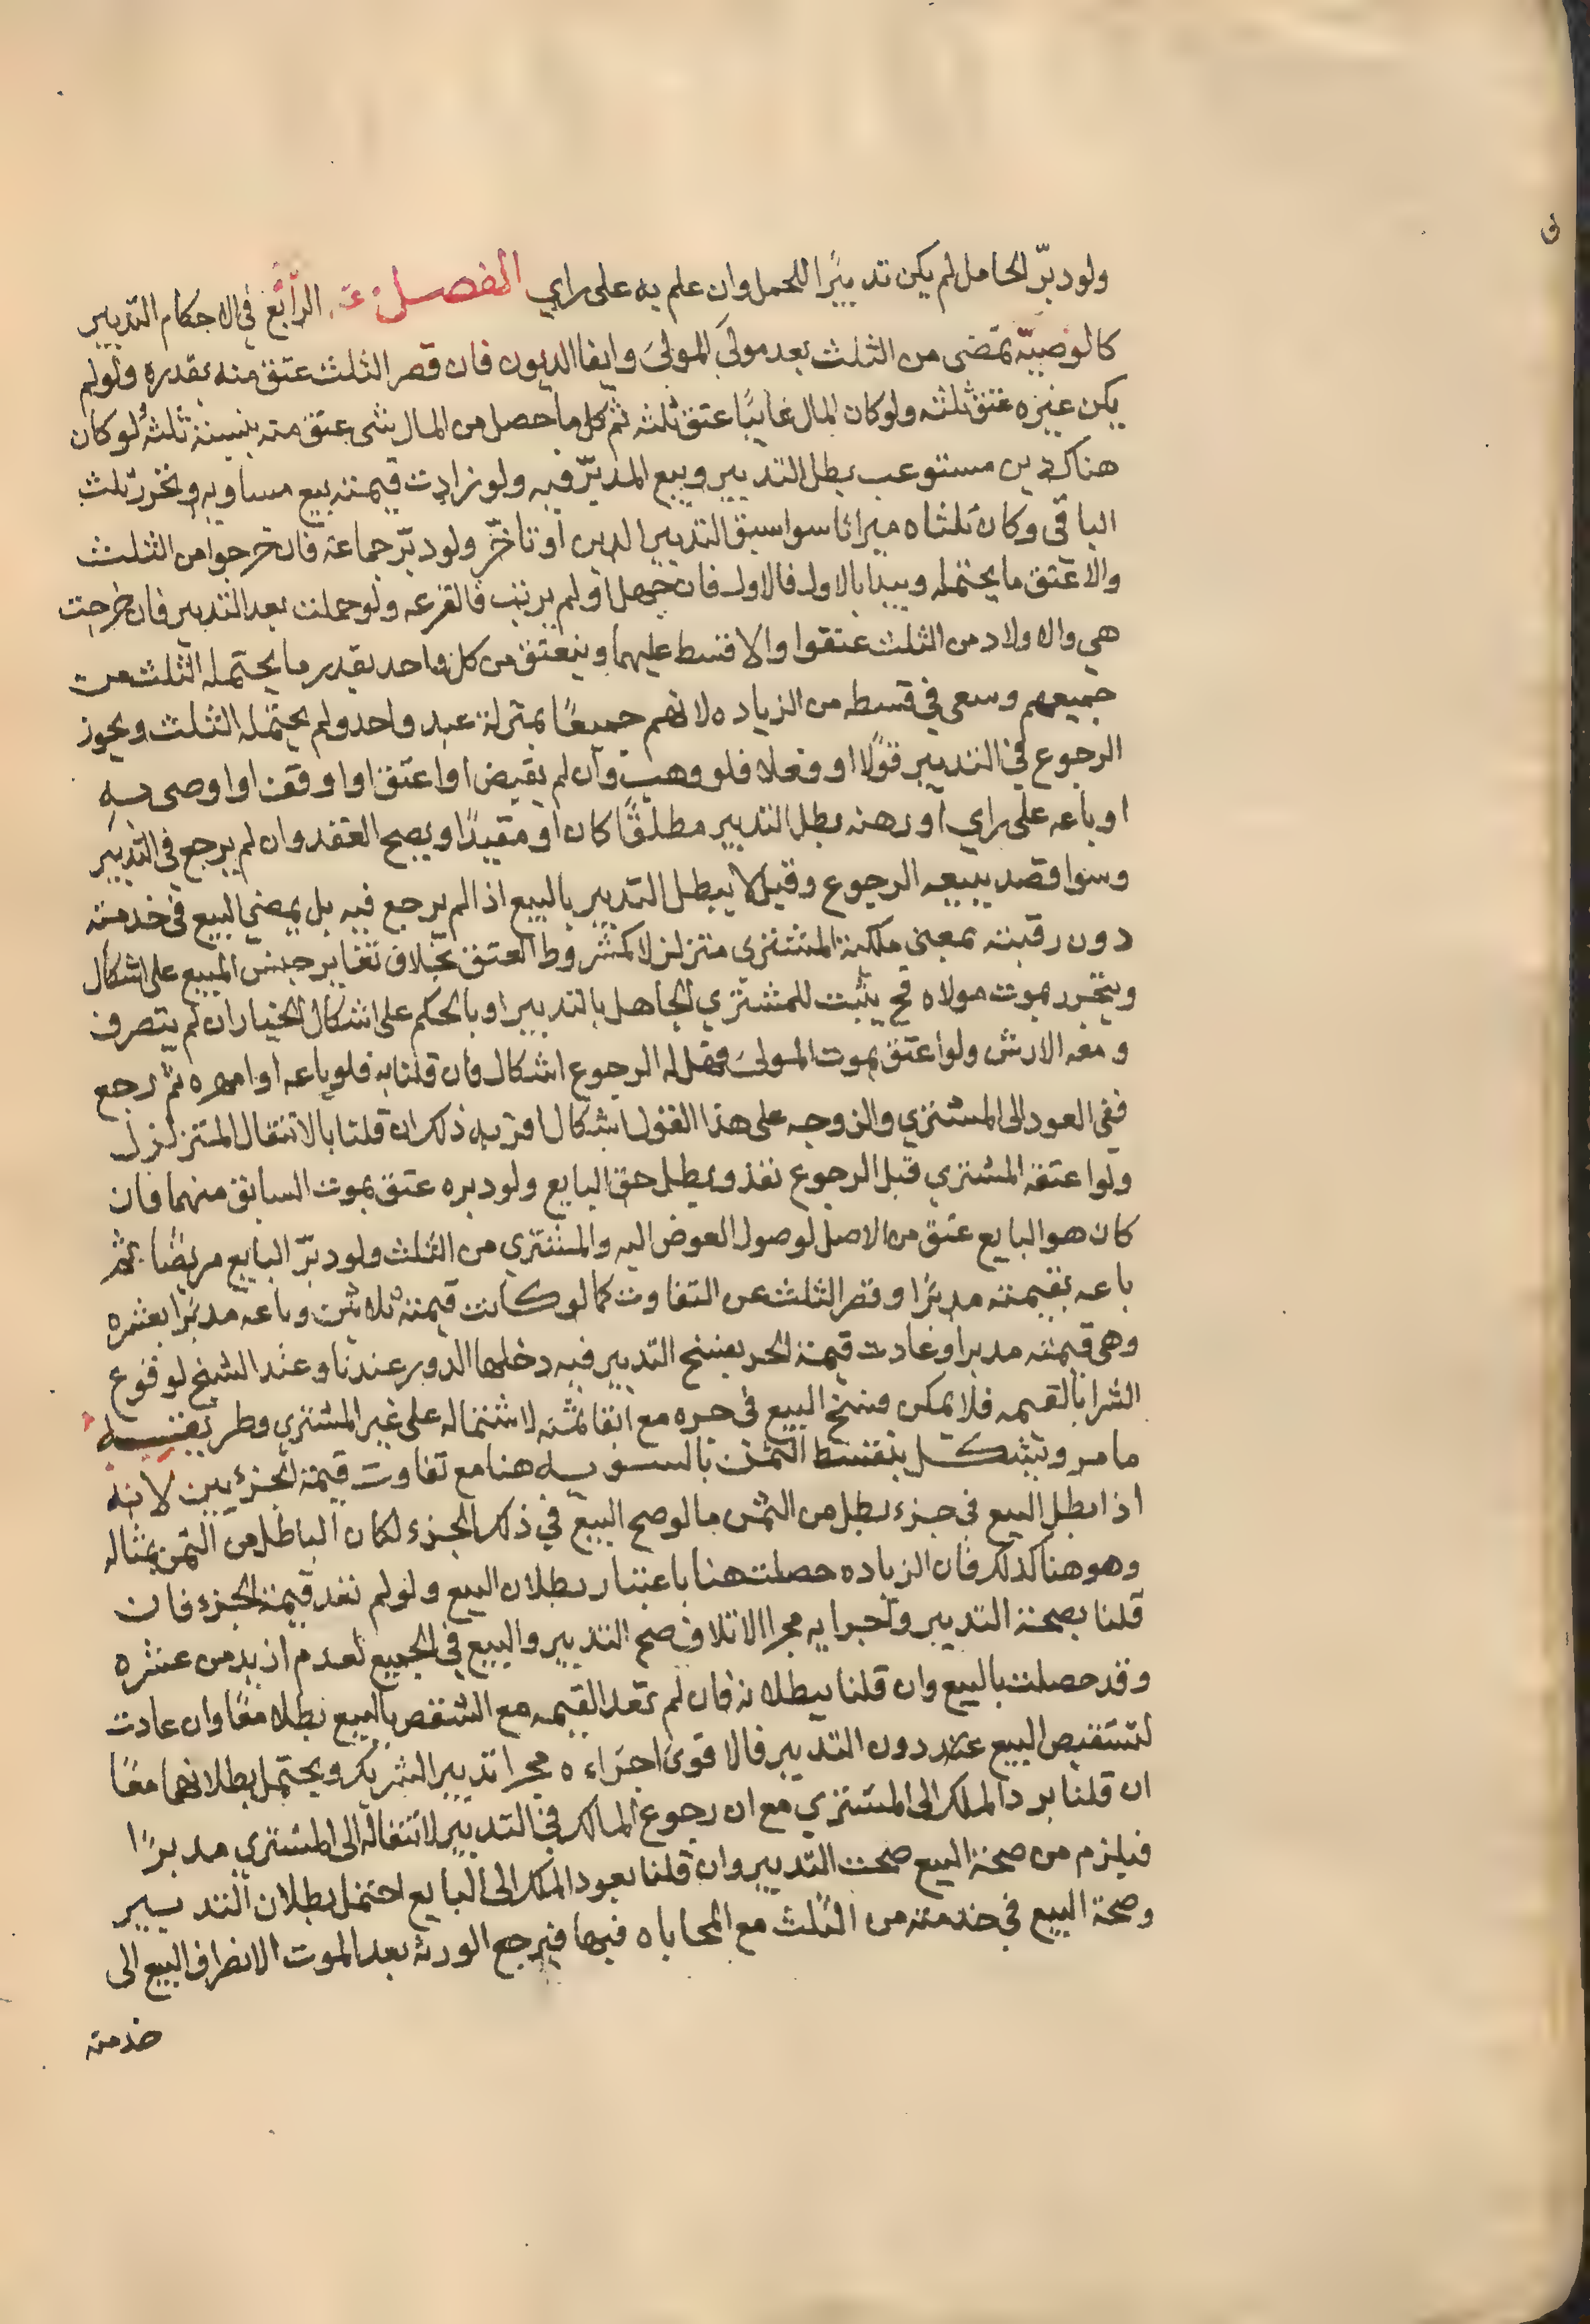 ولو دبّر الحامل لم يكن تدبيرًا للحمل وان علم به على راي الفصل الرابع في الاحكام التدبير
كالوصيّه تمضى من الثلث بعد مولى المولىَ وايفا الديون فان قصر الثلث عتق منه بقدره ولو لم
يكن غيره عتق ثلثه ولو كان المال غايبًا عتق ثلثه ثم كل ما حصل من المال شى عتق منه بنسبة ثلثه لو كان
هناك دين مستوعب بطل التدبير وبيع المدبّر فيه ولو زادت قيمته بيع مساويه وتحرر ثلث
الباقي وكان ثلثاه ميراثا سوا سبق التدبير الدين او تاخّر ولو دبّر جماعة فان خرجوا من الثلث
والا عتق ما يحتمله ويبدا بالاول فالاول فان جهل او لم يرتب فالقرعه ولو حملت بعد التدبير فان خرجت
هي والاولاد من الثلث عتقوا والا قسط عليهما وينعتق من كل واحد بقدر ما يحتمله الثلث من
جميعهم وسعى في قسطه من الزياده لانهم جميعًا بمنزلة عبد واحد ولم يحتمله الثلث ويجوز
الرجوع في التدبير قولًا او وفعلا فلو وهب وان لم يقبض او اعتق او اوقف او اوصى به
او باعه على راي او رهنه بطل التدبير مطلقًا كان او مقيدًا ويصح العقد وان لم يرجع في التدبير
وسوا قصد ببيعه الرجوع وقيل لا يبطل التدبير بالبيع اذا لم يرجع فيه بل يمضي البيع في خدمته
دون رقبته بمعنى ملكية المشترى متزلزلا كمشروط العتق بخلاف تغاير جنس المبيع على اشكال
ويتحرر بموت مولاه فح يثبت للمشتري الجاهل بالتدبير او بالحكم على اشكال الخيار ان لم يتصرف
ومعه الارش ولو اعتق بموت المولىَ فهل له الرجوع اشكال فان قلنا به فلو باعه او امهره ثم رجع
ففي العود الى المشتري والزوجه على هذا القول اشكال اقربه ذلك ان قلنا بالانتقال المتزلزل
ولو اعتقه المشتري قبل الرجوع نفذ وبطل حق البايع ولو دبره عتق بموت السابق منهما فان
كان هو البايع عتق من الاصل لوصول العوض اليه والمشتري من الثلث ولو دبّر البايع مريضًا ثم
باعه بقيمته مدبرًا وقصر الثلث عن التفاوت كما لو كانت قيمته ثلاثين وباعه مدبرًا بعشره
وهى قيمته مدبرا وعادت قيمة الحر بفسخ التدبير فيه دخلها الدور عندنا وعند الشيخ لوقوع
الشرا بالقيمه فلا يمكن فسخ البيع في جزه مع ابقا ثمنه لاشتماله على غير المشتري وطريقتسه
ما مر ويشكل بتقسط الثمن بالسويه هنا مع تفاوت قيمة الجزءيين لانه
اذا بطل البيع في جزء بطل من الثمن ما لو صح البيع في ذلك الجزء لكان الباطل من الثمن بمثاله
وهو هنا كذلك فان الزياده حصلت هنا باعتبار بطلان البيع ولو لم تعد قيمة الجزء فان
قلنا بصحة التدبير واجرايه مجرا الاتلاف صح التدبير والبيع في الجميع لعدم ازيد من عشره
وقد حصلت بالبيع وان قلنا ببطلانه فان لم تعد القيمه مع الشقص بالبيع بطلا معًا وان عادت
لتشقيص البيع عند دون التدبير فالاقوىَ اجراءه مجرا تدبير الشريك ويحتمل بطلانهما معًا
ان قلنا برد الملك الى المشتري مع ان رجوع المالك في التدبير لانتقاله الى المشتري مدبرًا
فيلزم من صحة البيع صحت التدبير وان قلنا بعود الملك الى البايع احتمل بطلان التدبير
وصحة البيع في خدمته من الثلث مع المحاباه فيها فيرجع الورثه بعد الموت الانصراف البيع الى
خدمته
ق